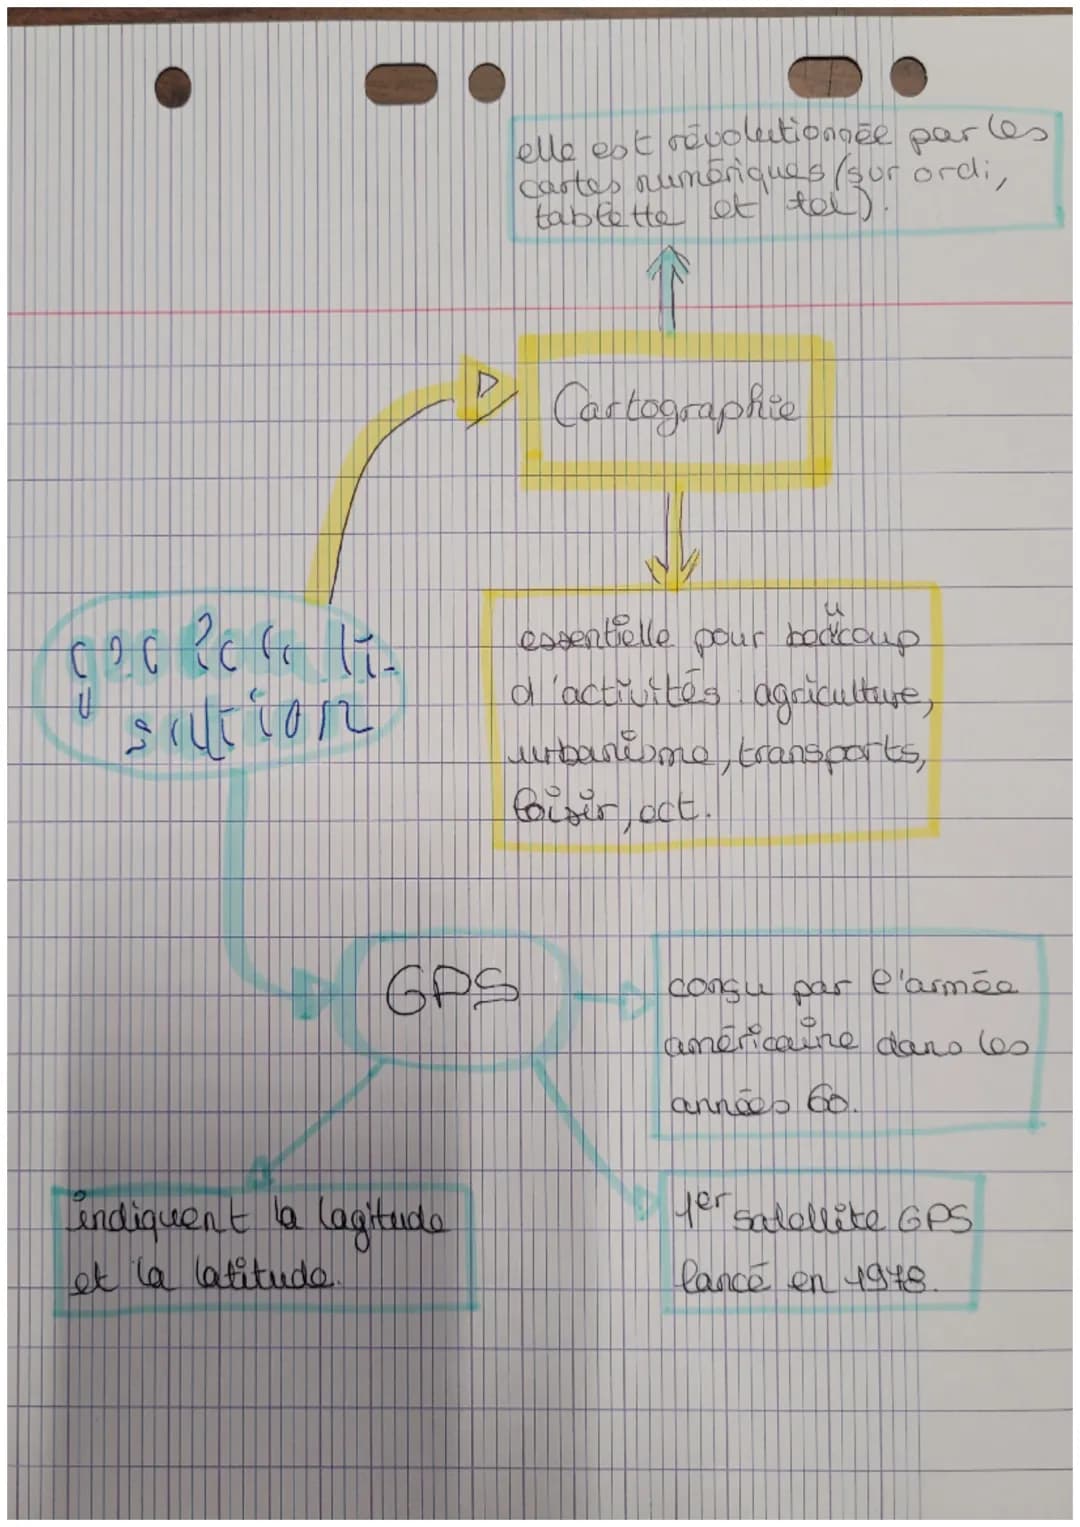 elle est révolutionnée par les
cartes numériques (sur ordi,
tablette et tel).
Cartographie
essentielle pour beaucoup
d'activités : agriculture,
urbanisme, transports,
loisir, ect.
GPS
conçu par l'armée
américaine dans les
années 60.
indiquent la lagitude
et la latitude.
1er satellite GPS
lancé en 1978.